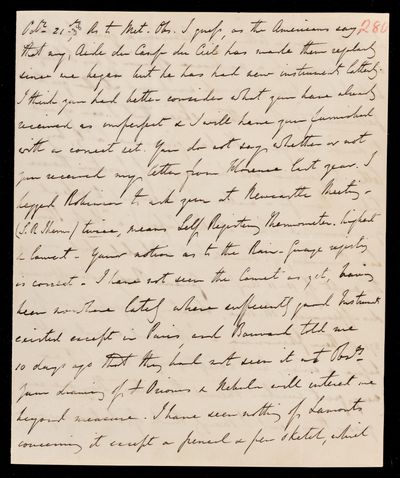 Octr 21st As to Met. Obs. I guess, as the Americans say 280
that my Aide du Camp du Ciel has made them regularly
since we began but he has had new instruments lately.
I think you had better consider what you have already
received as imperfect & I will have you furnished
with a correct set. You do not say whether or not
you received my letter from Florence last year. I
begged Robinson to ask you at Newcastle Meeting.
(S.R. Therm) twice, means Self Registering Thermometer. highest
& lowest. Your notion as to the Rain-Guage registry
is correct. I have not seen the Comet as yet, having
been nowhere lately where sufficiently good Instruments
existed except in Paris, and Bouvard told me
10 days ago that they had not seen it at Obsy.
Your drawing of Orionis & Nebula will interest me
beyond measure. I have seen nothing of Lamonts
concerning it except a pencil & pen sketch, which